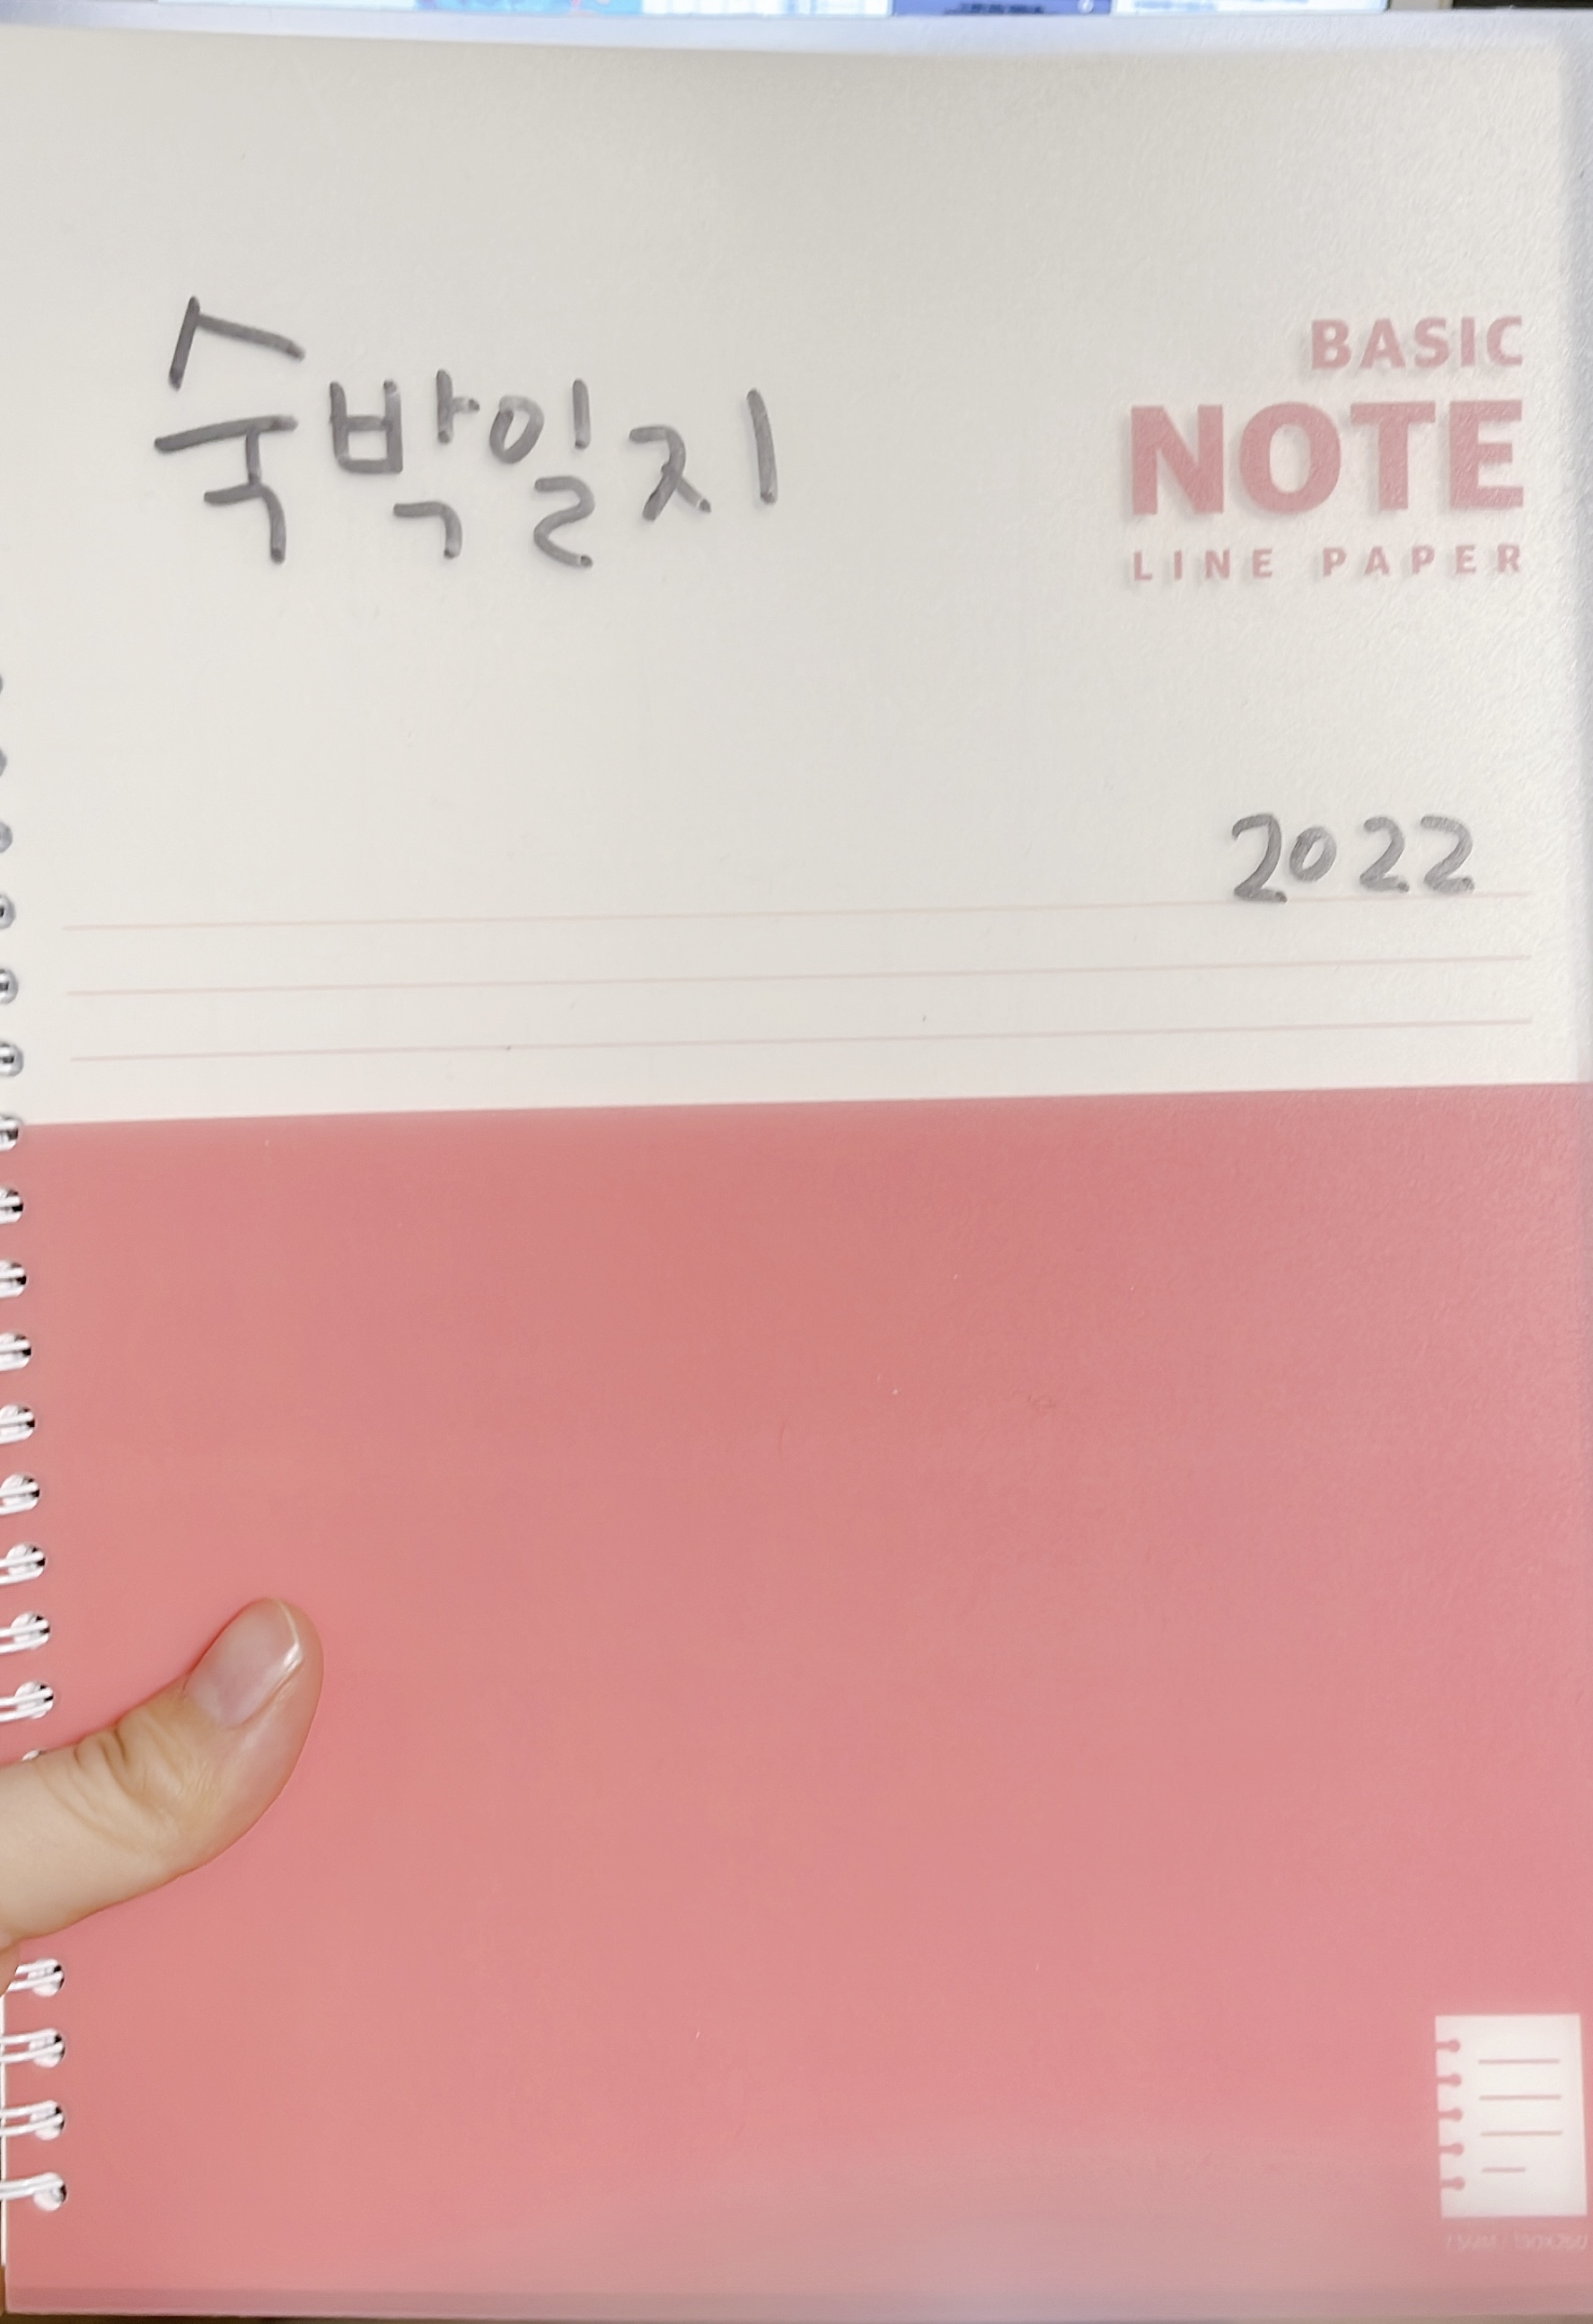 숙박일지
BASIC
NOTE
LINE PAPER
2022